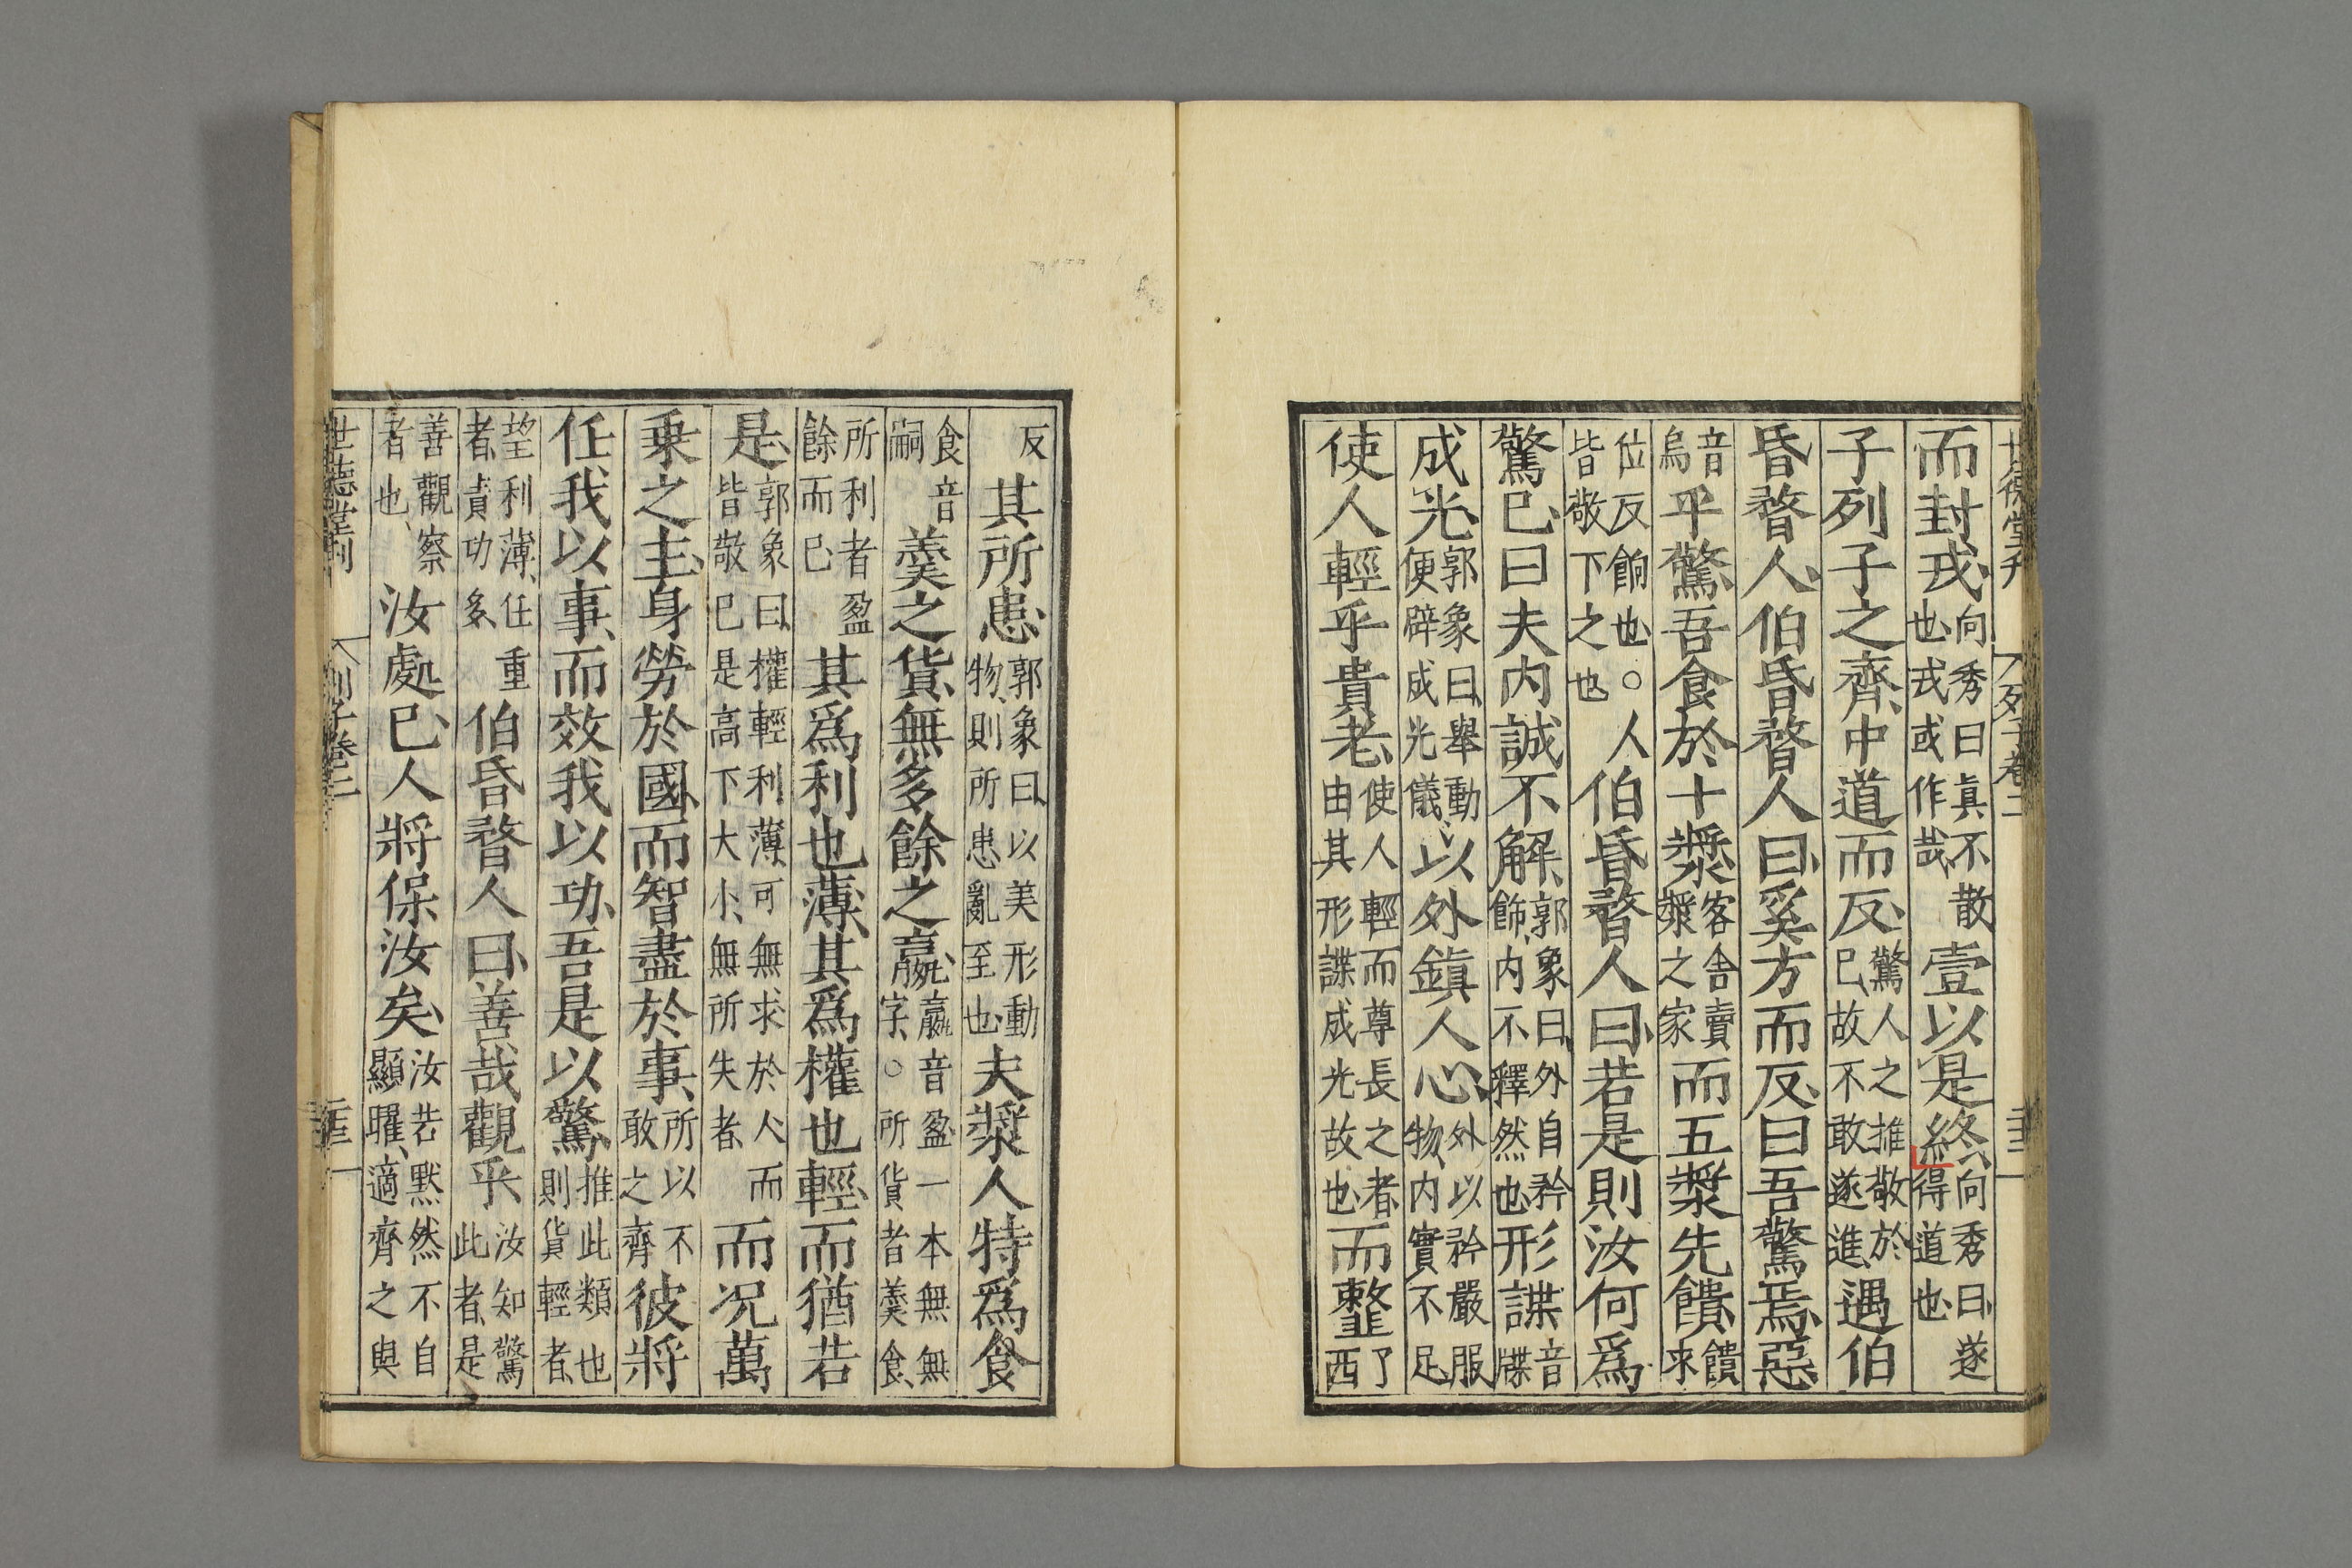 世德堂刊 列子卷二 二十三
而封戎向秀曰眞不散也戎或作哉壹以是終向秀曰遂得道也
子列子之齊中道而反驚人之推敬於己故不敢遂進遇伯
昏瞀人伯昏瞀人曰奚方而反曰吾驚焉惡
音烏乎驚吾食於十漿客舍賣漿之家而五漿先饋饋求
位反餉也○人皆敬下之也伯昏瞀人曰若是則汝何爲
驚已曰夫内誠不解郭象曰外自矜飾内不釋然也形諜音牒
成光郭象曰舉動便辟成光儀以外鎭人心外以矜嚴服物内實不足
使人輕乎貴老使人輕而尊長之者由其形諜成光故也而𩐋了西
反其所患郭象曰以美形動物則所患亂至也夫漿人特爲食
食音嗣羹之貨無多餘之贏贏音盈一本無無字○所貨者羹食
所利者盈餘而已其爲利也薄其爲權也輕而猶若
是郭象曰權輕利薄可無求於人而皆敬己是高下大小無所失者而况萬
乗之主身勞於國而智盡於事所以不敢之齊彼將
任我以事而效我以功吾是以驚推此類也則貨輕者
望利薄任重者責功多伯昏瞀人曰善哉觀乎汝知驚此者是
善觀察者也汝處已人將保汝矣汝若默然不自顯曜適齊之與
世德堂刊 列子卷二 二十三